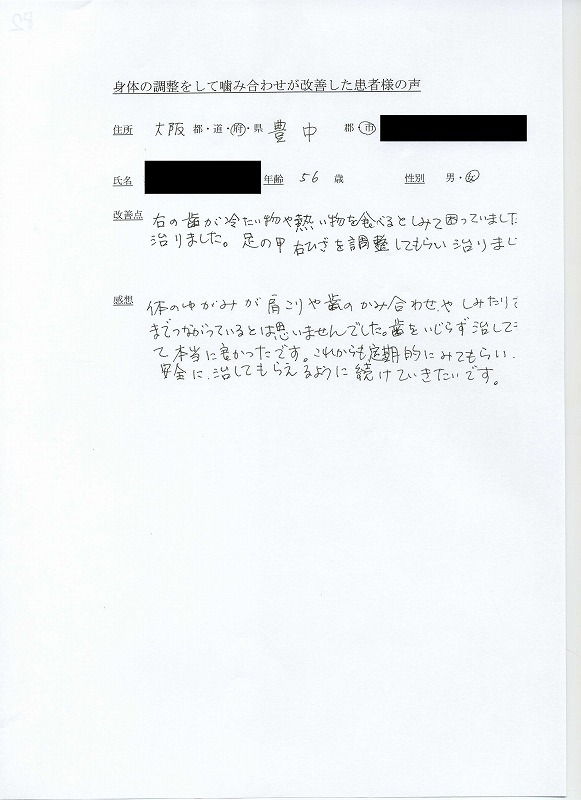 身体の調整をして噛み合わせが改善した患者様の声
住所 大阪 都・道・府・県 豊中 郡・市
氏名 年齢 56 歳 性別 男・女
改善点 右の歯が冷たい物や熱い物を食べるとしみて困っていました
治りました。足の甲 右ひざを調整してもらい治りまし
感想 体のゆがみが肩こりや歯のかみ合わせやしみたりす
までつながっているとは思いませんでした。歯をいじらず治して
て本当に良かったです。これからも定期的にみてもらい、
安全に、治してもらえるように続けていきたいです。